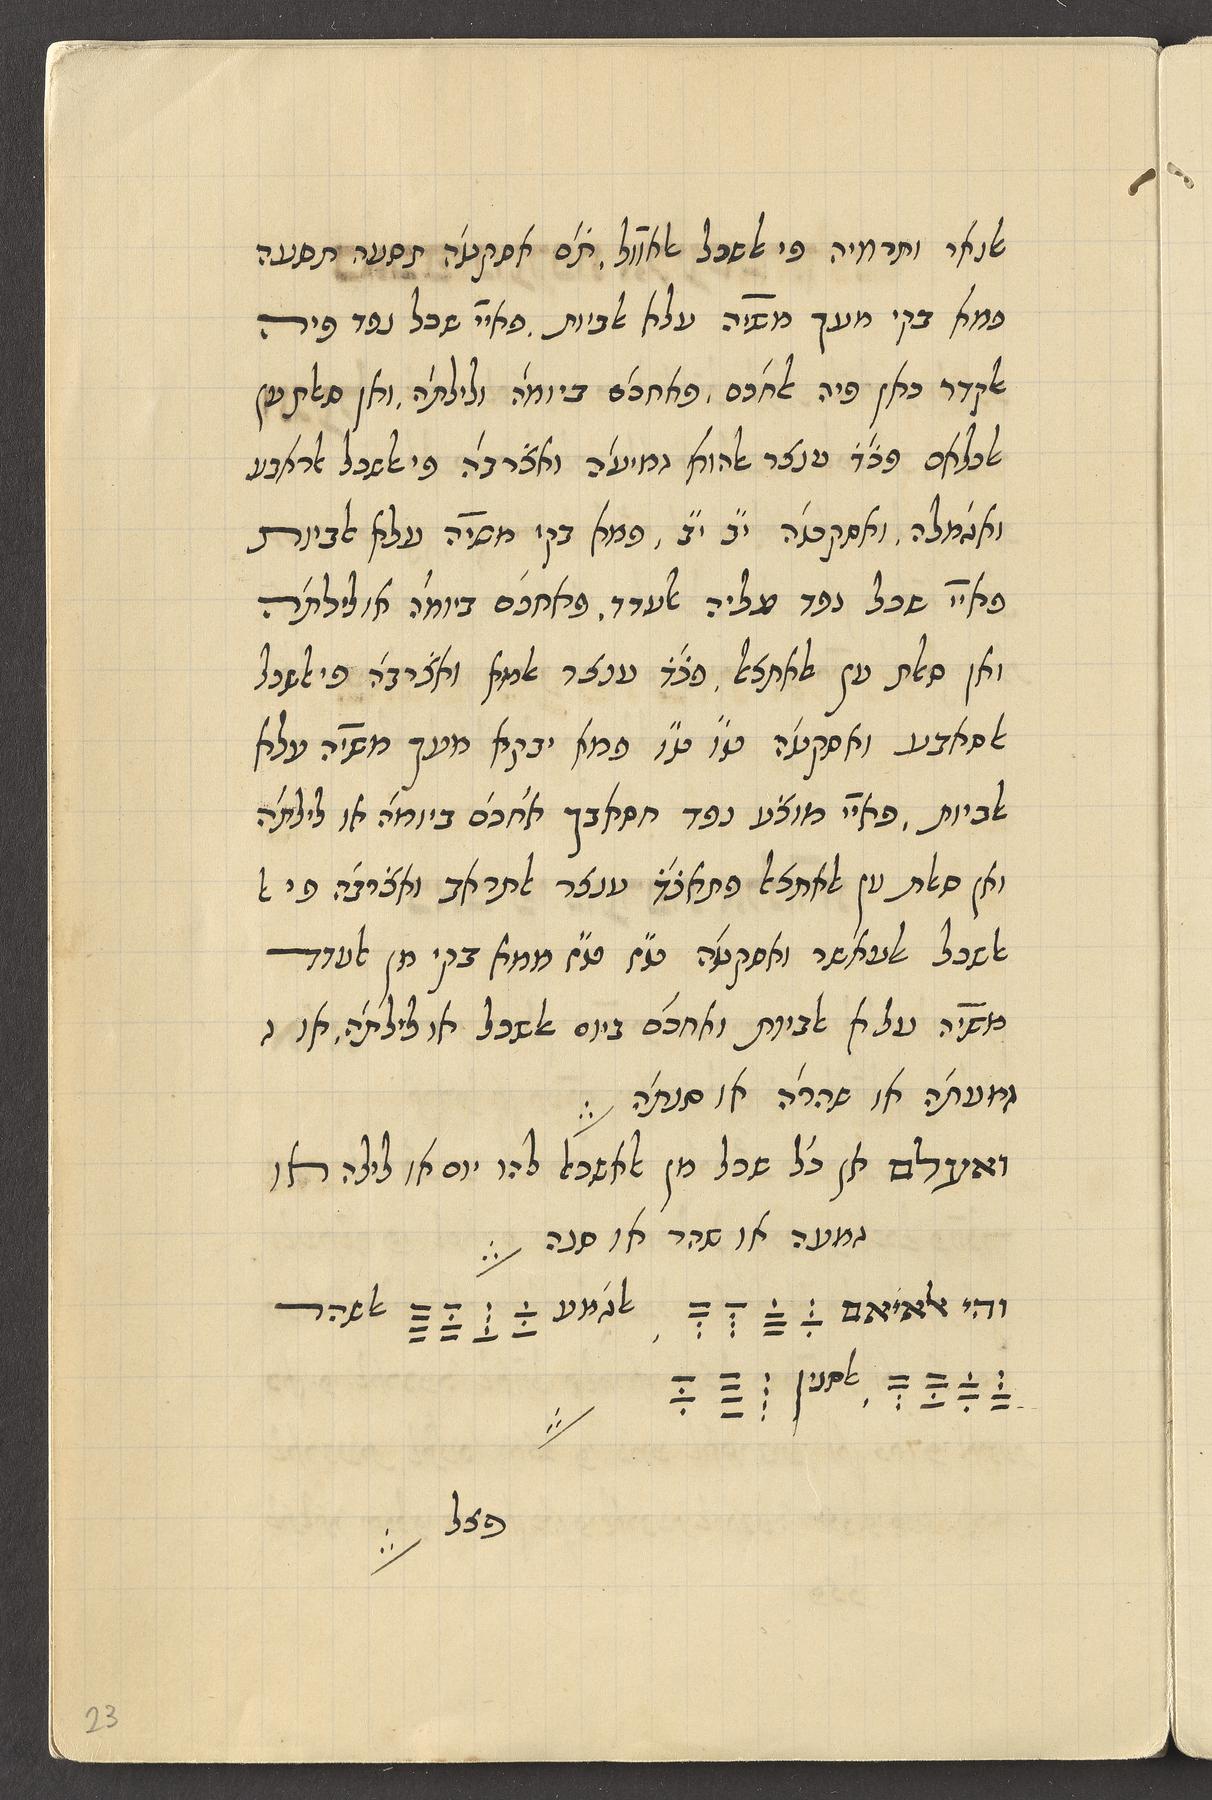 אלנאר ותרמיה פי אלשכל אלאוול, תׄם אסקטׄה תסעה תסעה
פמא בקי מעך משׁיה עלא אלביות. פאיי שכל נפד פיה
אלקדר כאן פיה אלחׄכם. פאחכׄם ביומׄה ולילתׄה. ואן סאלת ען
אלכלאם פכׄדׄ ענצר אלהוא גמיעׄה ואצׄרבׄה פי אלשכל אלראבע
ואגׄמלה. ואסקטׄה י״ב י״ב, פמא בקי משׁיה עלא אלביות
פאיי שכל נפד עליה אלעדד. פאחכׄם ביומׄה או לילתׄה
ואן סאלת ען אלאתצאל. פכׄדׄ ענצר אלמא ואצׄרבׄה פי אלשכל
אלסאבע ואסקטׄה ט״ו ט״ו פמא יבקא מעך משׁיה עלא
אלביות. פאיי מוצׄע נפד חסאבך אחׄכׄם ביומׄה או לילתׄה
ואן סאלת ען אלאתצאל פתאכׄדׄ ענצר אלתראב ואצׄרבׄה פי אל
אלשכל אלעאשר ואסקטׄה ט״ז ט״ז ממא בקי מן אלעדד
משׁיה עלא אלביות ואחכׄם ביום אלשכל או לילתׄה. או ג
גמעתׄה או שהרׄה או סנתׄה
ואעלם אן כׄל שכל מן אלאשכאל להו יום או לילה או
גמעה או שהר או סנה
והי אלאיׄאם , אלגׄמע אלשהר
, אלסנין
פצל
23